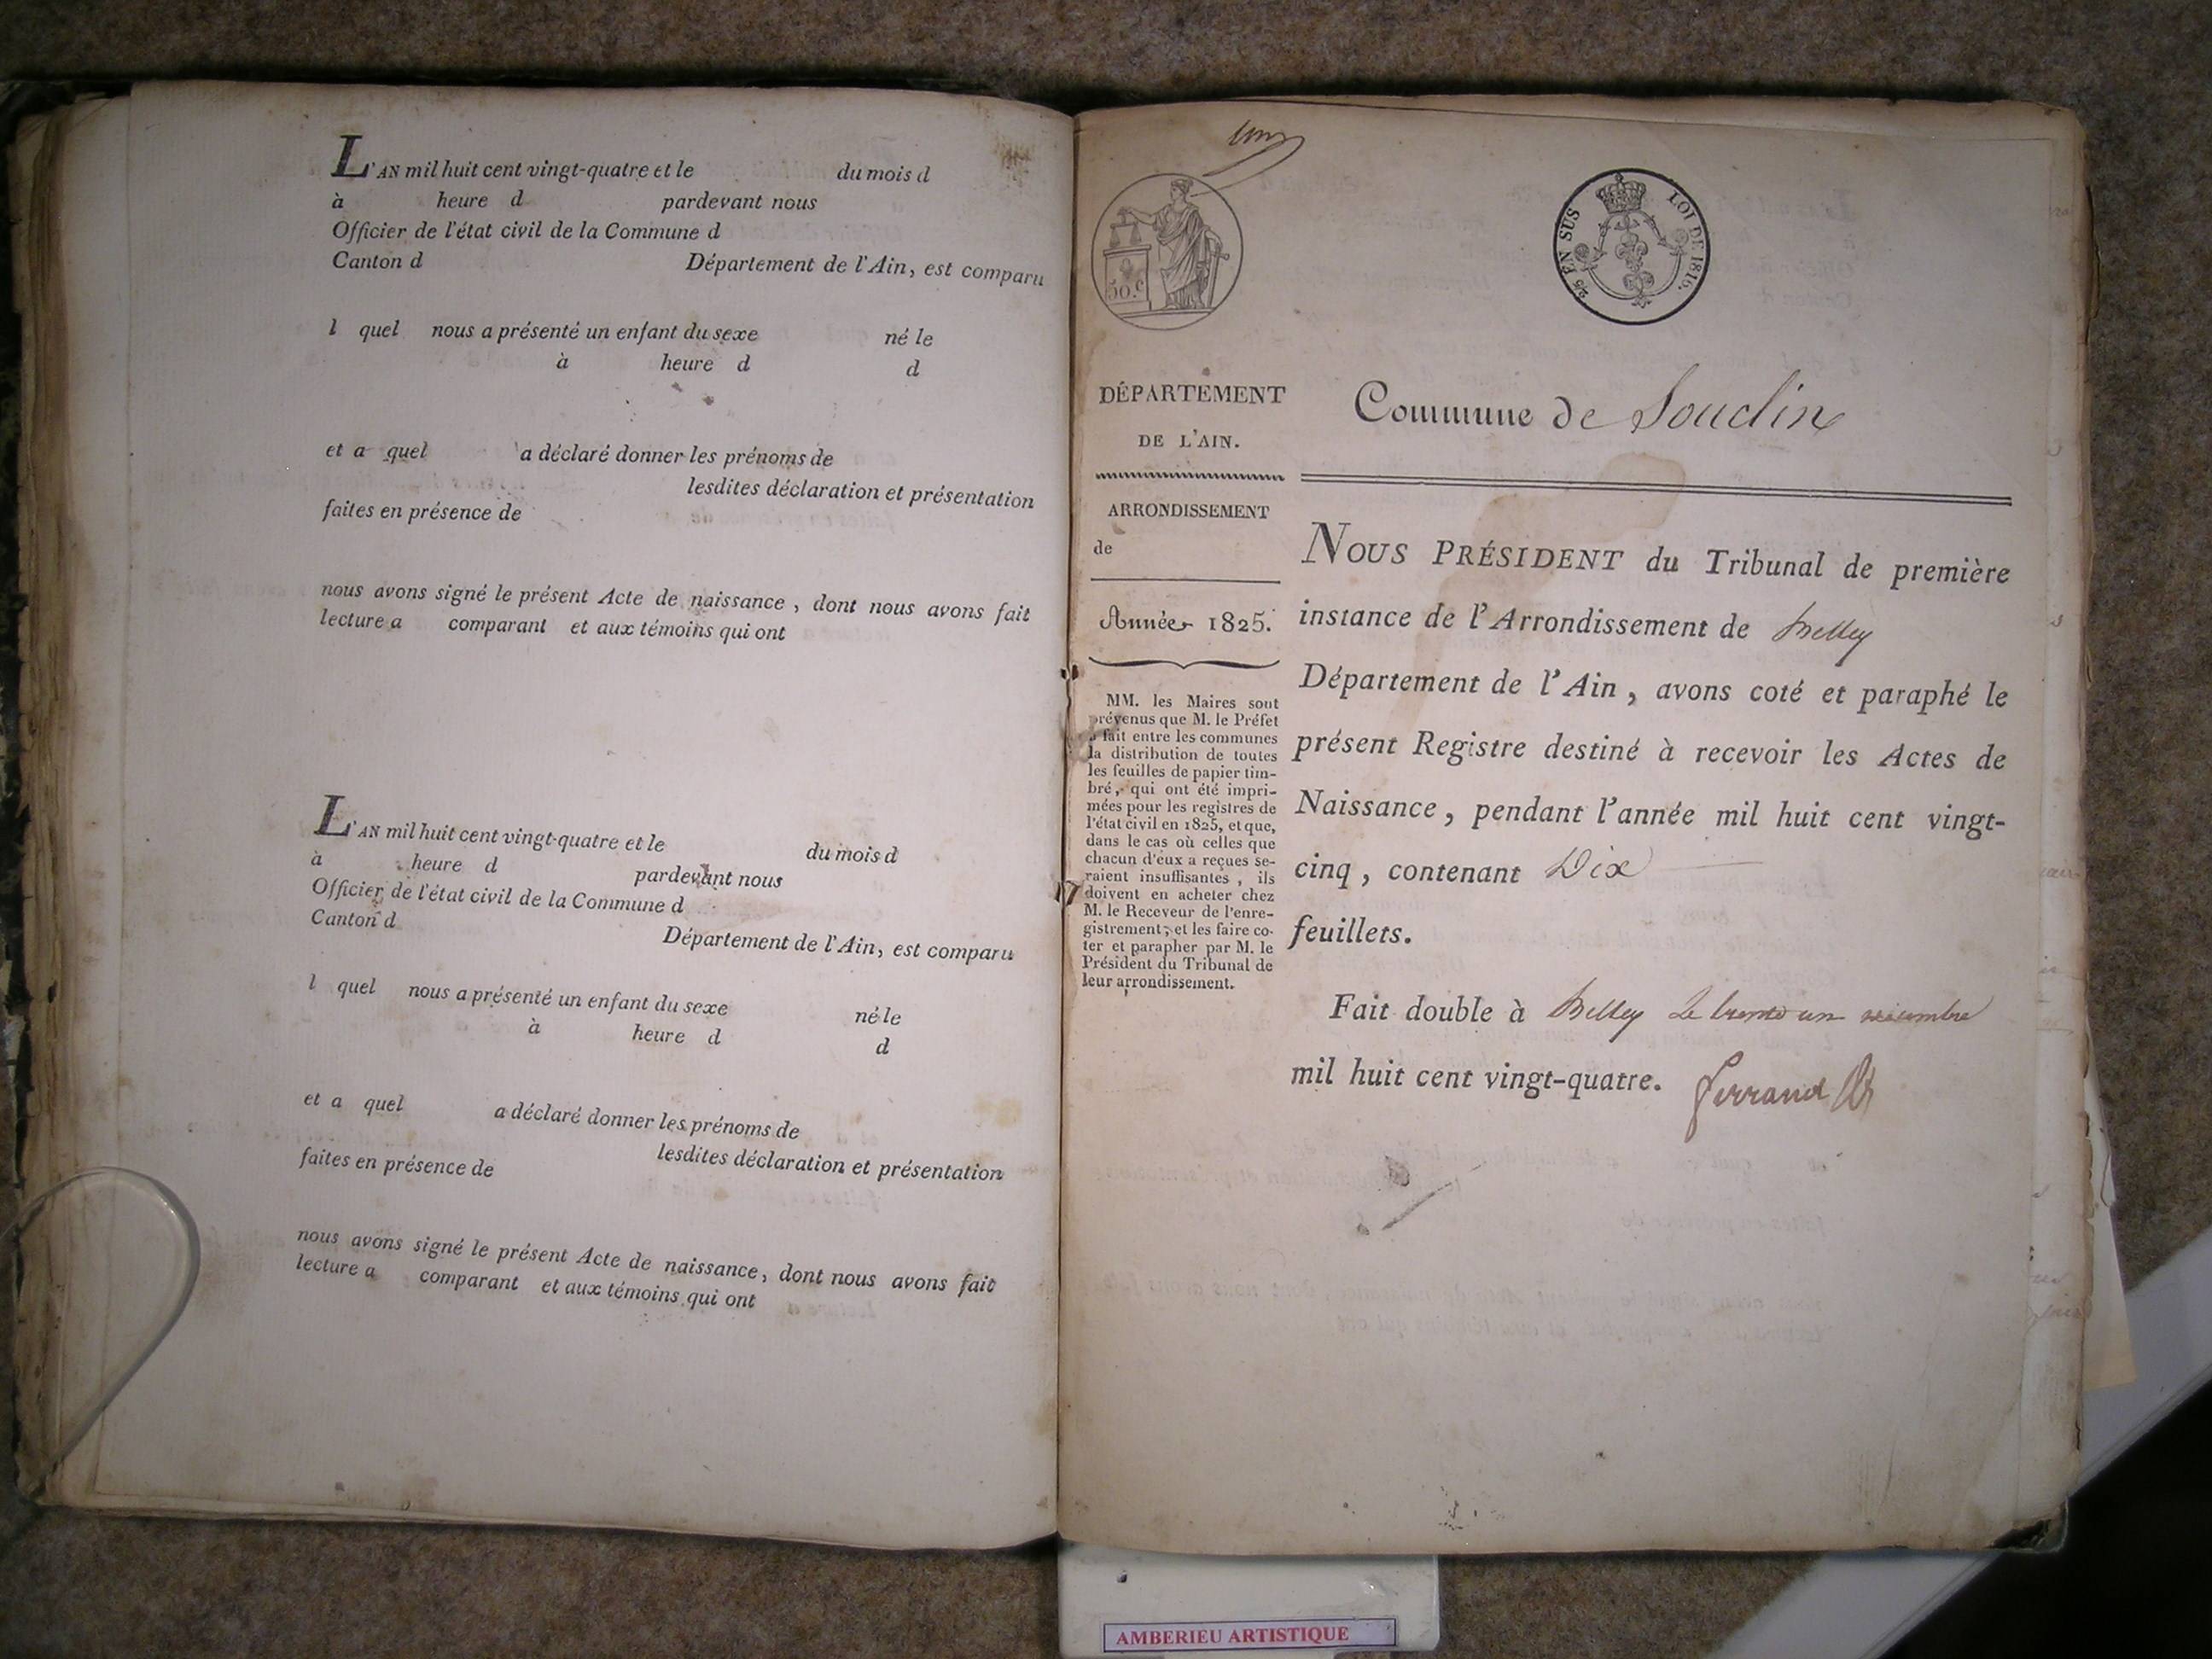 L'AN mil huit cent vingt-quatre et le du mois d
à heure d pardevant nous
Officier de l'état civil de la Commune d
Canton d Département de l'Ain, est comparu
l quel nous a présenté un enfant du sexe né le
à heure d d
et a quel a déclaré donner les prénoms de
lesdites déclaration et présentation
faites en présence de
nous avons signé le présent Acte de naissance, dont nous avons fait
lecture a comparant et aux témoins qui ont
L'AN mil huit cent vingt-quatre et le du mois d
à heure d pardevant nous
Officier de l'état civil de la Commune d
Canton d Département de l'Ain, est comparu
l quel nous a présenté un enfant du sexe né le
à heure d d
et a quel a déclaré donner les prénoms de
lesdites déclaration et présentation
faites en présence de
nous avons signé le présent Acte de naissance, dont nous avons fait
lecture a comparant et aux témoins qui ont
50.c
25 EN SUS LOI DE 1816.
DÉPARTEMENT
DE L'AIN.
ARRONDISSEMENT
de
Année 1825.
MM. les Maires sont
prévenus que M. le Préfet
a fait entre les communes
la distribution de toutes
les feuilles de papier tim-
bré, qui ont été impri-
mées pour les registres de
l'état civil en 1825, et que,
dans le cas où celles que
chacun d'eux a reçues se-
raient insuffisantes, ils
doivent en acheter chez
M. le Receveur de l'enre-
gistrement, et les faire co-
ter et parapher par M. le
Président du Tribunal de
leur arrondissement.
Commune de Souclin
NOUS PRÉSIDENT du Tribunal de première
instance de l'Arrondissement de Belley
Département de l'Ain, avons coté et paraphé le
présent Registre destiné à recevoir les Actes de
Naissance, pendant l'année mil huit cent vingt-
cinq, contenant Dix
feuillets.
Fait double à Belley Le trente un
mil huit cent vingt-quatre.
Ferrand
AMBERIEU ARTISTIQUE